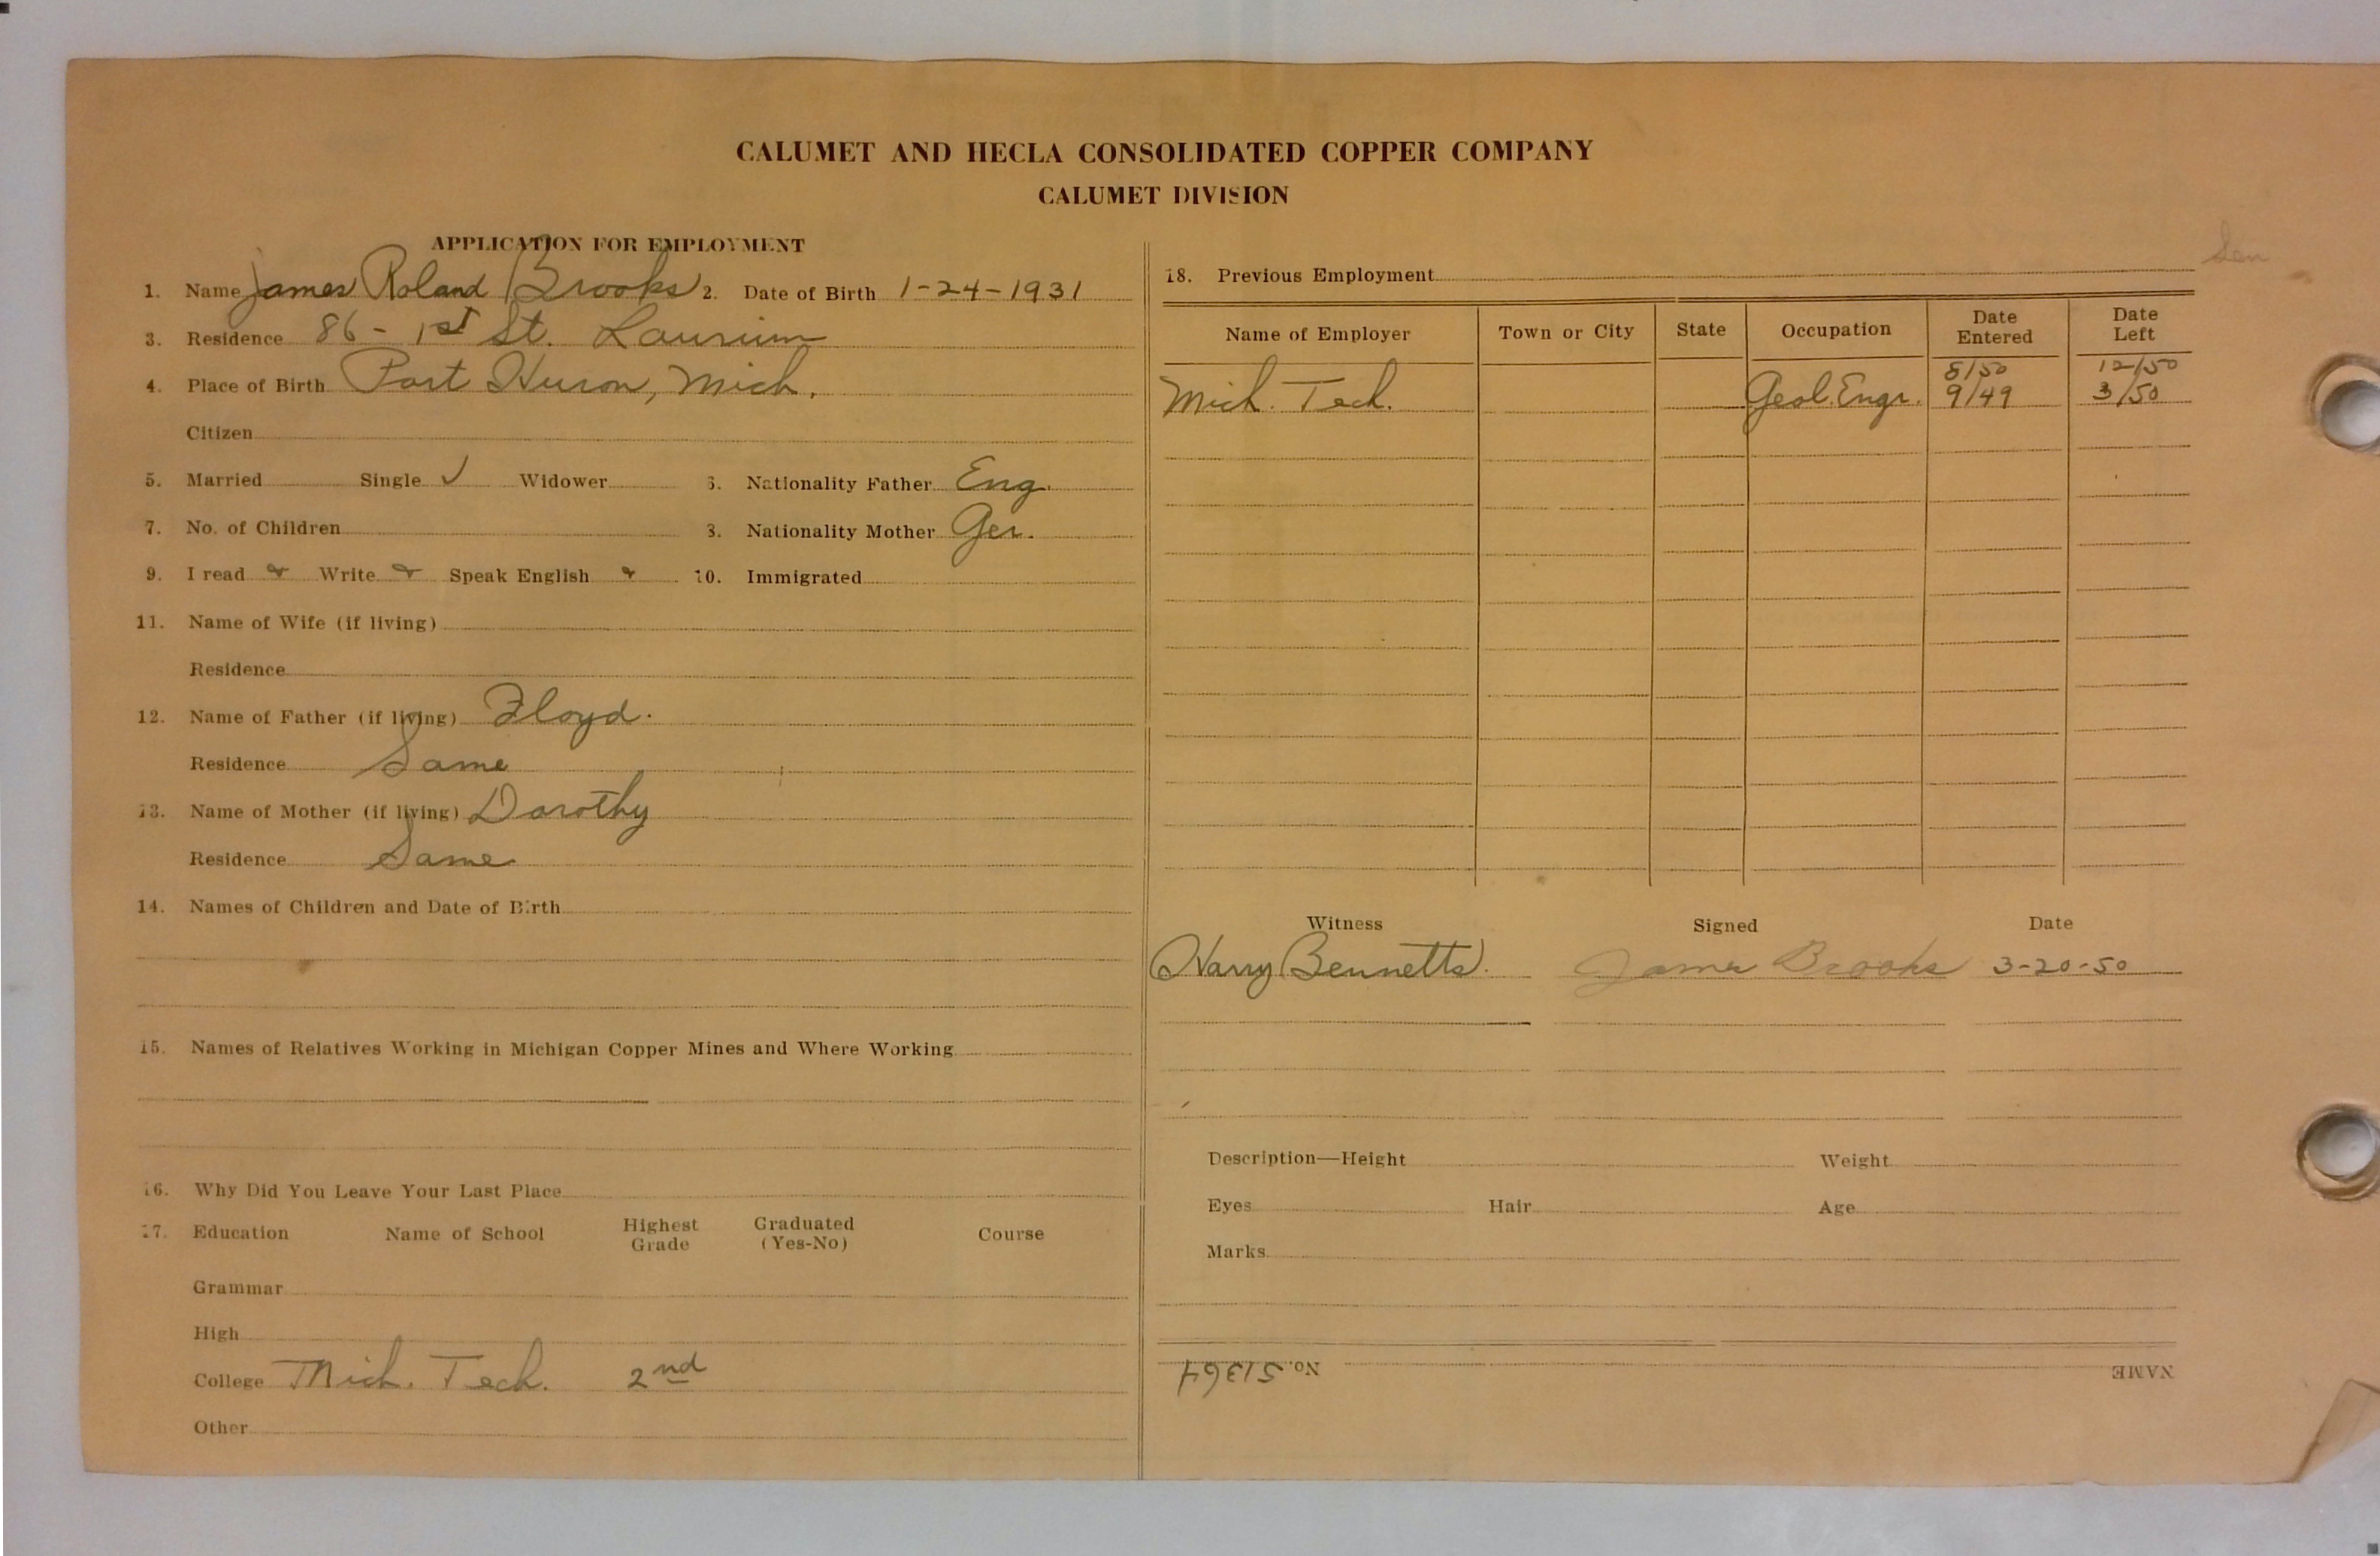 CALUMET AND HECLA CONSOLIDATED COPPER COMPANY
CALUMET DIVISION
APPLICATION FOR EMPLOYMENT
1. Name James Roland Brooks 2. Date of Birth 1-24-1931
3. Residence 86 - 1st St. Laurium
4. Place of Birth Port Huron, Mich.
Citizen
5. Married Single ✓ Widower 6. Nationality Father Eng.
7. No. of Children 8. Nationality Mother Ger.
9. I read Write Speak English 10. Immigrated
11. Name of Wife (if living)
Residence
12. Name of Father (if living) Floyd.
Residence Same
13. Name of Mother (if living) Dorothy
Residence Same
14. Names of Children and Date of Birth
15. Names of Relatives Working in Michigan Copper Mines and Where Working
16. Why Did You Leave Your Last Place
17. Education Name of School Highest Grade Graduated (Yes-No) Course
Grammar
High
College Mich. Tech. 2nd
Other
18. Previous Employment
Name of Employer Town or City State Occupation Date Entered Date Left
8/50 12/50
Mich. Tech. Geol. Engr. 9/49 3/50
Witness Signed Date
Harry Bennetts. James Brooks 3-20-50
Description—Height Weight
Eyes Hair Age
Marks
NAME No. 51364